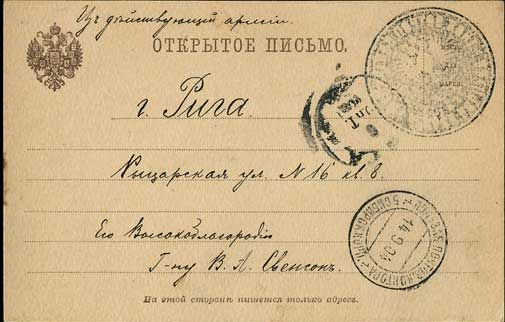 Изъ дѣйствующей арміи.
ОТКРЫТОЕ ПИСЬМО.
г. Рига.
Рыцарская ул. N 16 кв. 8.
Его Высокоблагородію
Г-ну В. А. Свенсонъ.
На этой сторонѣ пишется только адресъ.
14 9 04